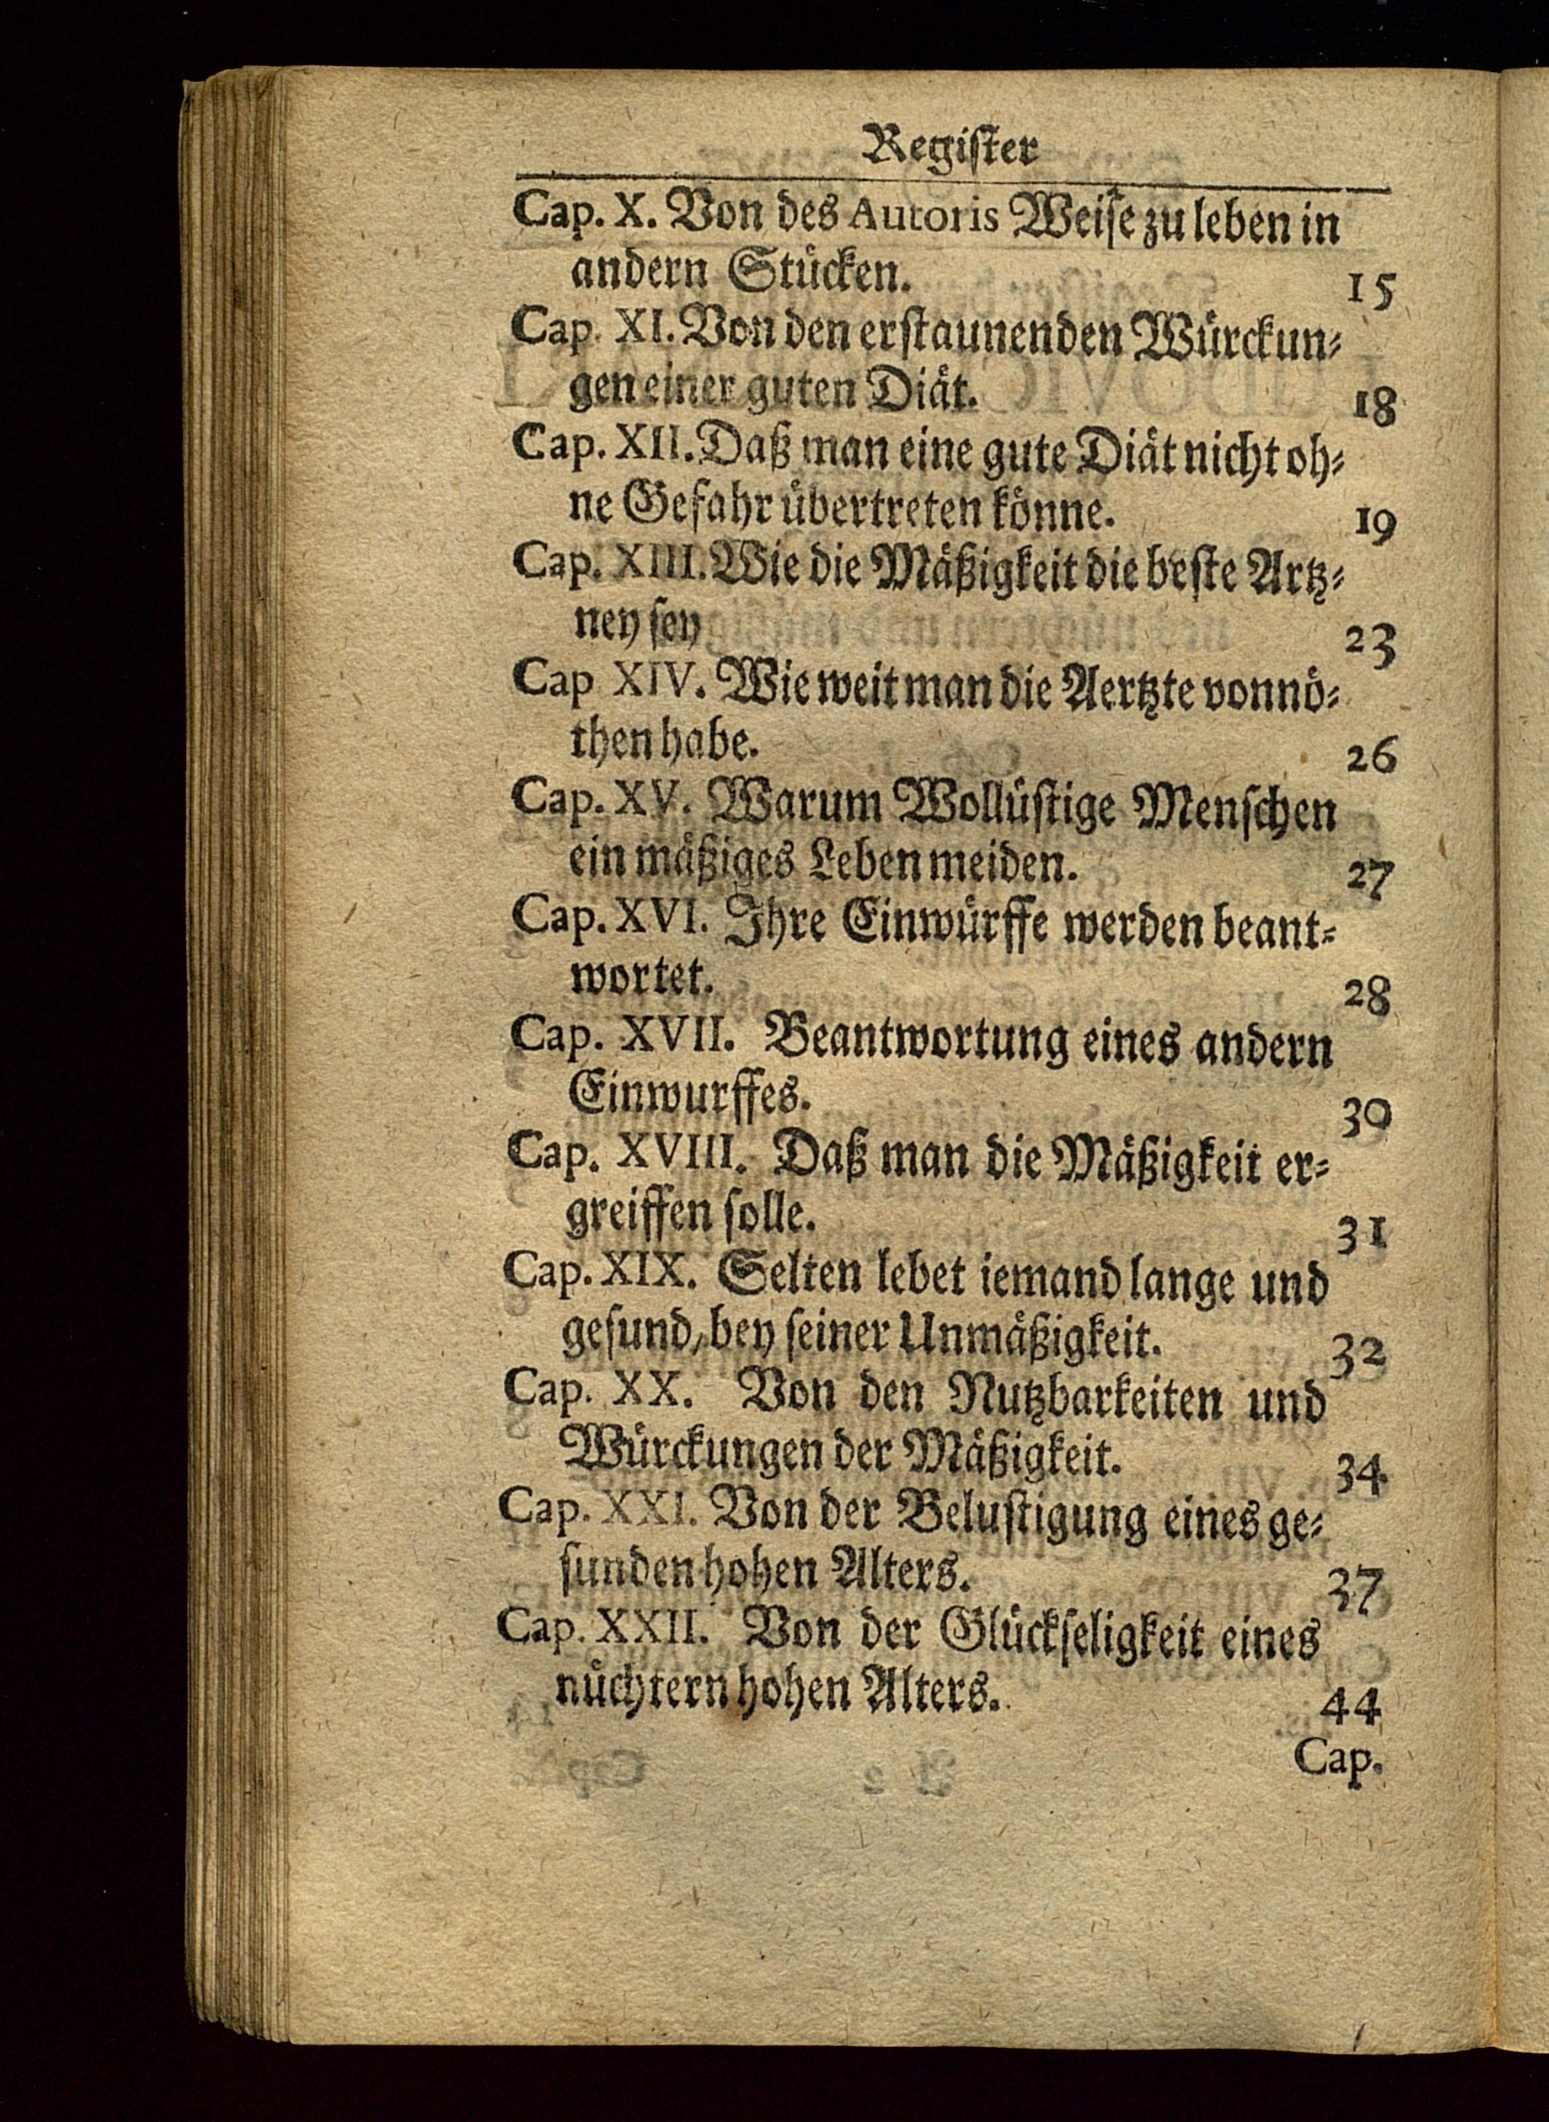 Register
Cap. X. Von des Autoris Weise zu leben in
andern Stücken. 15
Cap. XI. Von den erstaunenden Würckun⸗
gen einer guten Diät. 18
Cap. XII. Daß man eine gute Diät nicht oh⸗
ne Gefahr übertreten könne. 19
Cap. XIII. Wie die Mäßigkeit die beste Artz⸗
ney sey 23
Cap XIV. Wie weit man die Aertzte vonnö⸗
then habe. 26
Cap. XV. Warum Wollüstige Menschen
ein mäßiges Leben meiden. 27
Cap. XVI. Ihre Einwürffe werden beant⸗
wortet. 28
Cap. XVII. Beantwortung eines andern
Einwurffes. 30
Cap. XVIII. Daß man die Mäßigkeit er⸗
greiffen solle. 31
Cap. XIX. Selten lebet iemand lange und
gesund/ bey seiner Unmäßigkeit. 32
Cap. XX. Von den Nutzbarkeiten und
Würckungen der Mäßigkeit. 34
Cap. XXI. Von der Belustigung eines ge⸗
sunden hohen Alters. 37
Cap. XXII. Von der Glückseligkeit eines
nüchtern hohen Alters. 44
Cap.